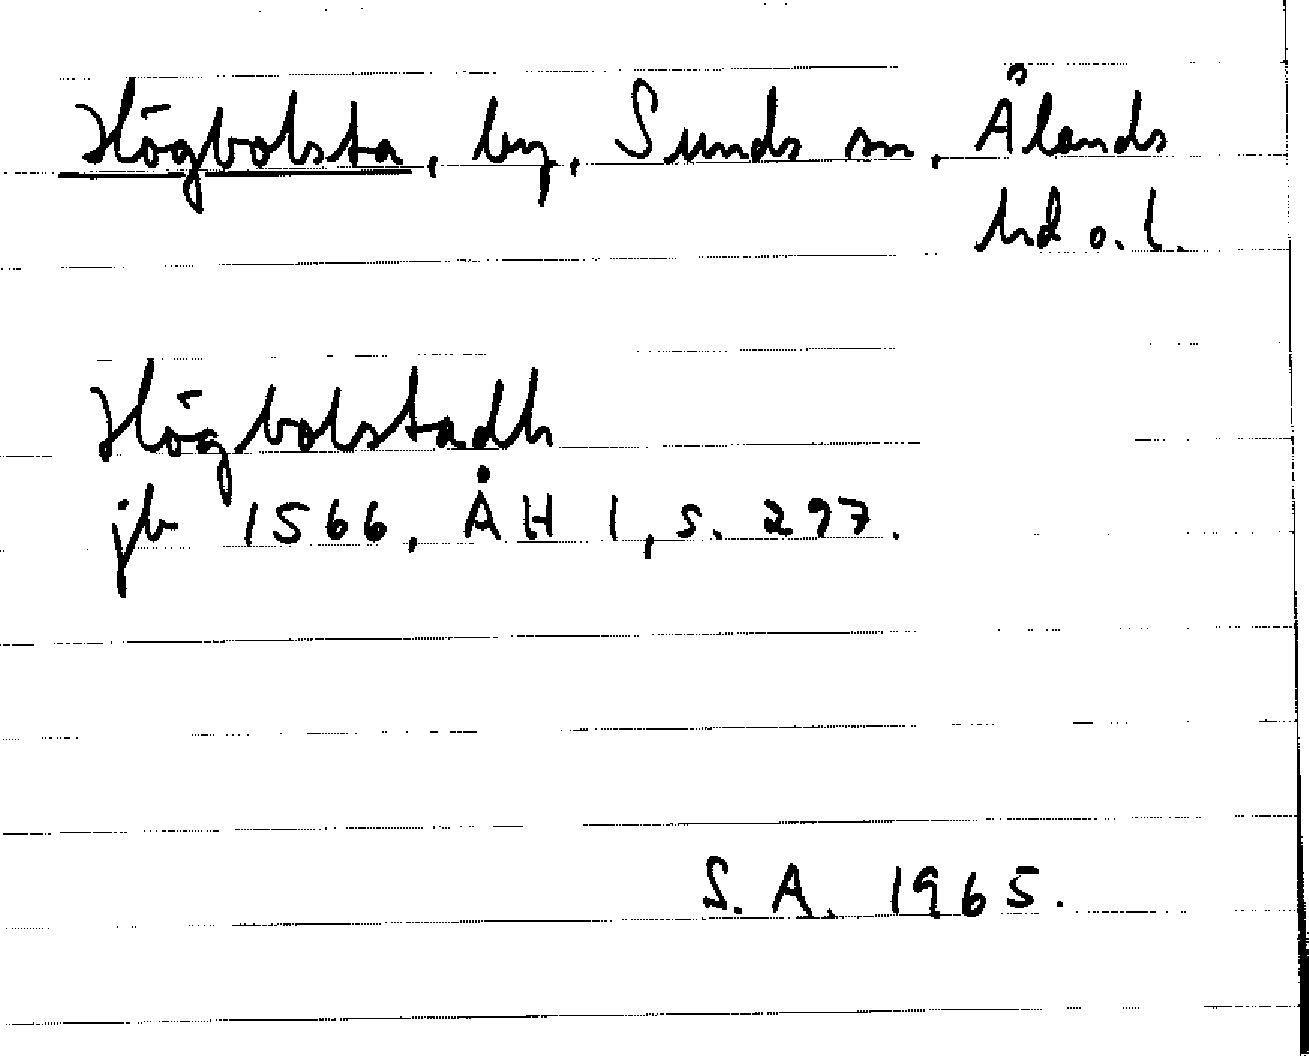 Högbolsta, by, Sunds sn, Ålands
hd o. l.
Högbolstadh
jb 1566, ÅH 1, s. 297.
S. A. 1965.